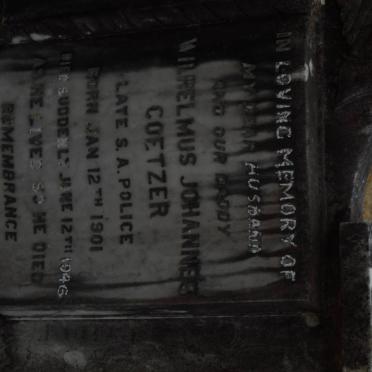 IN LOVING MEMORY OF
MY DEAR HUSBAND
AND OUR DADDY
WILHELMUS JOHANNES
COETZER
LATE S.A. POLICE
BORN JAN 12TH 1901
DIED SUDDENLY JUNE 12TH 1946
AS HE LIVED SO HE DIED
REMEMBRANCE